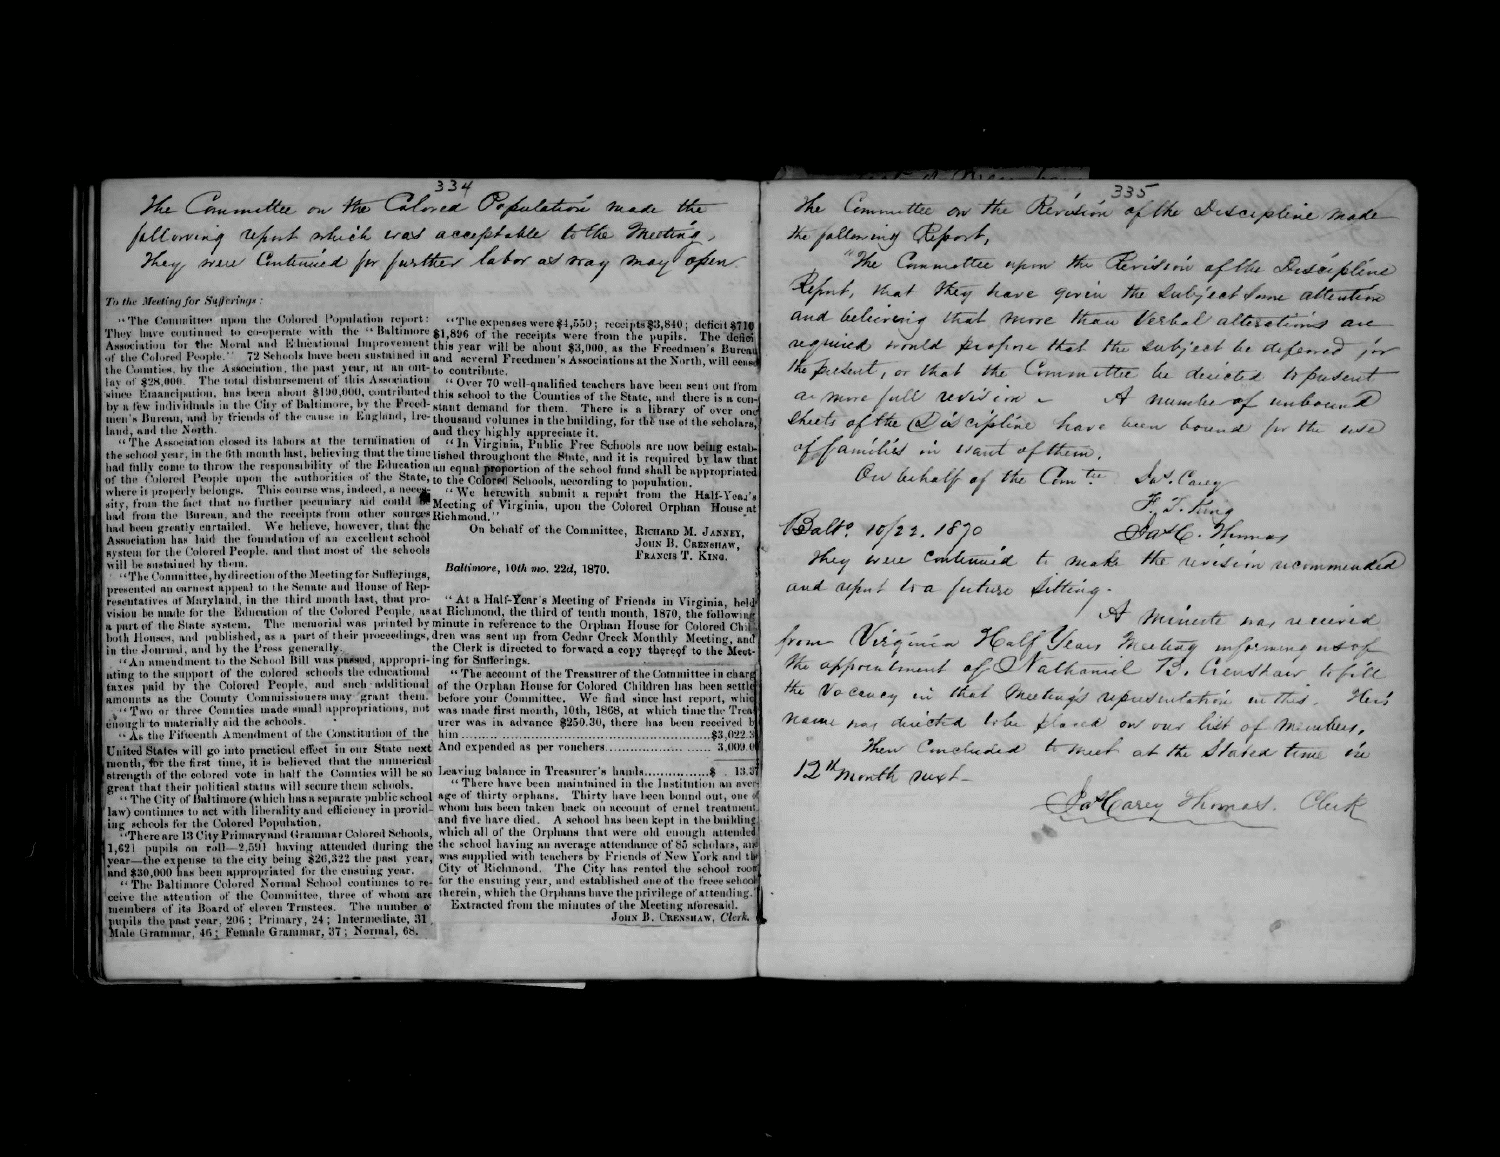 334
The Committee on the Colored Population made the
following report which was acceptable to the Meeting,
They were Continued for further labor as way may open.
To the Meeting for Sufferings:
"The Committee upon the Colored Population report:
They have continued to co-operate with the "Baltimore
Association for the Moral and Educational Improvement
of the Colored People." 72 Schools have been sustained in
the Counties, by the Association, the past year, at an out-
lay of $28,000. The total disbursement of this Association
since Emancipation, has been about $190,000, contributed
by a few individuals in the City of Baltimore, by the Freed-
men's Bureau, and by friends of the cause in England, Ire-
land, and the North.
"The Association closed its labors at the termination of
the school year, in the 6th month last, believing that the time
had fully come to throw the responsibility of the Education
of the Colored People upon the authorities of the State,
where it properly belongs. This course was, indeed, a neces-
sity, from the fact that no further pecuniary aid could be
had from the Bureau, and the receipts from other sources
had been greatly curtailed. We believe, however, that the
Association has laid the foundation of an excellent school
system for the Colored People, and that most of the schools
will be sustained by them.
"The Committee, by direction of the Meeting for Sufferings,
presented an earnest appeal to the Senate and House of Rep-
resentatives of Maryland, in the third month last, that pro-
vision be made for the Education of the Colored People, as
a part of the State system. The memorial was printed by
both Houses, and published, as a part of their proceedings,
in the Journal, and by the Press generally.
"An amendment to the School Bill was passed, appropri-
ating to the support of the colored schools the educational
taxes paid by the Colored People, and such additional
amounts as the County Commissioners may grant them.
"Two or three Counties made small appropriations, not
enough to materially aid the schools.
"As the Fifteenth Amendment of the Constitution of the
United States will go into practical effect in our State next
month, for the first time, it is believed that the numerical
strength of the colored vote in half the Counties will be so
great that their political status will secure them schools.
"The City of Baltimore (which has a separate public school
law) continues to act with liberality and efficiency in provid-
ing schools for the Colored Population.
"There are 13 City Primary and Grammar Colored Schools,
1,621 pupils on roll—2,591 having attended during the
year—the expense to the city being $26,322 the past year,
and $30,000 has been appropriated for the ensuing year.
"The Baltimore Colored Normal School continues to re-
ceive the attention of the Committee, three of whom are
members of its Board of eleven Trustees. The number o
pupils the past year, 206; Primary, 24; Intermediate, 31
Male Grammar, 46; Female Grammar, 37; Normal, 68.
"The expenses were $4,550; receipts $3,840; deficit $710
$1,896 of the receipts were from the pupils. The defici
this year will be about $3,000, as the Freedmen's Bureau
and several Freedmen's Associations at the North, will cease
to contribute.
"Over 70 well-qualified teachers have been sent out from
this school to the Counties of the State, and there is a con-
stant demand for them. There is a library of over one
thousand volumes in the building, for the use of the scholars,
and they highly appreciate it.
"In Virginia, Public Free Schools are now being estab-
lished throughout the State, and it is required by law that
an equal proportion of the school fund shall be appropriated
to the Colored Schools, according to population.
"We herewith submit a report from the Half-Year's
Meeting of Virginia, upon the Colored Orphan House at
Richmond."
On behalf of the Committee, RICHARD M. JANNEY,
JOHN B. CRENSHAW,
FRANCIS T. KING.
Baltimore, 10th mo. 22d, 1870.
"At a Half-Year's Meeting of Friends in Virginia, held
at Richmond, the third of tenth month, 1870, the following
minute in reference to the Orphan House for Colored Chil
dren was sent up from Cedar Creek Monthly Meeting, and
the Clerk is directed to forward a copy thereof to the Meet-
ing for Sufferings.
"The account of the Treasurer of the Committee in charg
of the Orphan House for Colored Children has been settle
before your Committee. We find since last report, whic
was made first month, 10th, 1868, at which time the Treas
urer was in advance $250.30, there has been received b
him ........ $3,022.3
And expended as per vouchers........ 3,009.0
Leaving balance in Treasurer's hands........ $ 13.3
"There have been maintained in the Institution an aver-
age of thirty orphans. Thirty have been bound out, one o
whom has been taken back on account of cruel treatment,
and five have died. A school has been kept in the building
which all of the Orphans that were old enough attended
the school having an average attendance of 85 scholars, and
was supplied with teachers by Friends of New York and th
City of Richmond. The City has rented the school room
for the ensuing year, and established one of the free school
therein, which the Orphans have the privilege of attending."
Extracted from the minutes of the Meeting aforesaid.
JOHN B. CRENSHAW, Clerk.
335
The Committee on the Revision of the Discipline made
the following Report,
"The Committee upon the Revision of the Discipline
Report, that they have given the subject some attention
and believing that more than Verbal alterations are
required would propose that the subject be deferred for
the present, or that the Committee be directed to present
a more full revision – A number of unbound
sheets of the Discipline have been bound for the use
of families in want of them.
On behalf of the Com.tee Jas. Carey
F. T. King
Balto. 10/22. 1870 Jas C. Thomas
They were continued to make the revision recommended
and report to a future sitting.
A minute was received
from Virginia Half Years Meeting informing us of
the appointment of Nathaniel B. Crenshaw to fill
the vacancy in that Meeting's representation in this. His
name was directed to be placed on our list of members.
Then Concluded to meet at the Stated time in
12th month next –
Jas Carey Thomas. Clerk